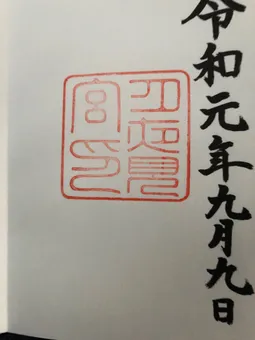 令和元年九月九日
宮印